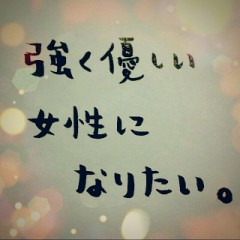 強く優しい
女性に
なりたい。